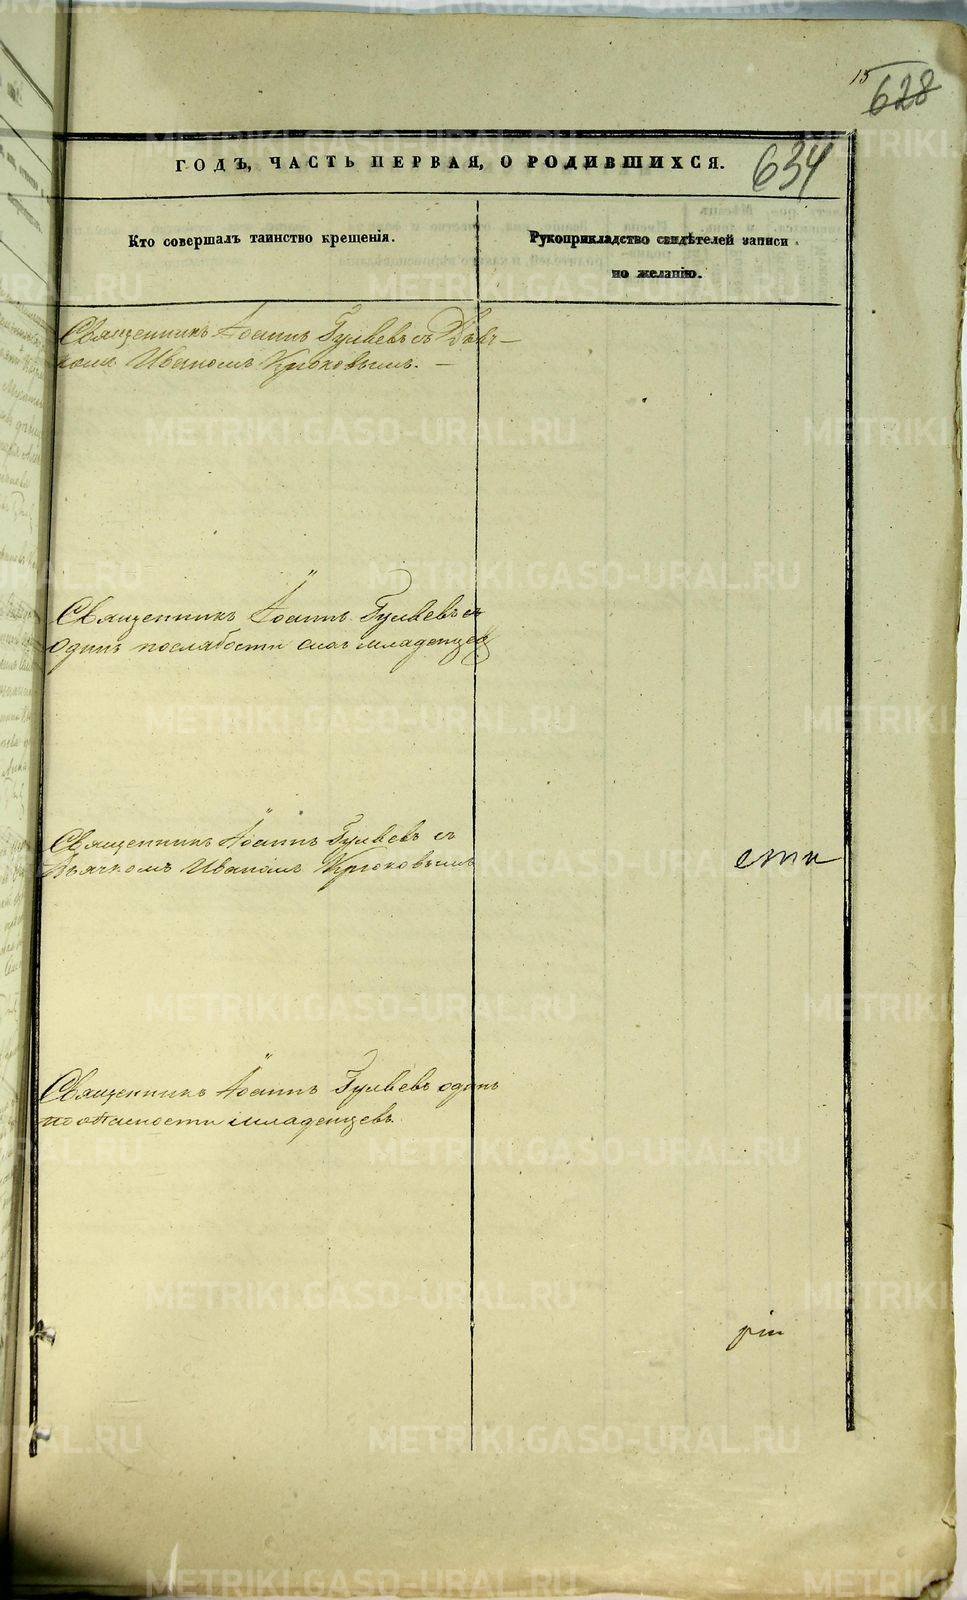 15
628
634
ГОДЪ, ЧАСТЬ ПЕРВАЯ, О РОДИВШИХСЯ.
Кто совершалъ таинство крещенія.
Рукоприкладство свидѣтелей записи
по желанію.
Священникъ Іоаннъ Гуляевъ съ Дьяч-
комъ Иваномъ Крюковымъ. —
Священникъ Іоаннъ Гуляевъ
одинъ послабости младенцев
Священникъ Іоаннъ Гуляевъ съ
Дьячкомъ Иваномъ Крюковымъ
сти
Священникъ Іоаннъ Гуляевъ одинъ
младенцевъ.
ріи
METRIKI.GASO-URAL.RU